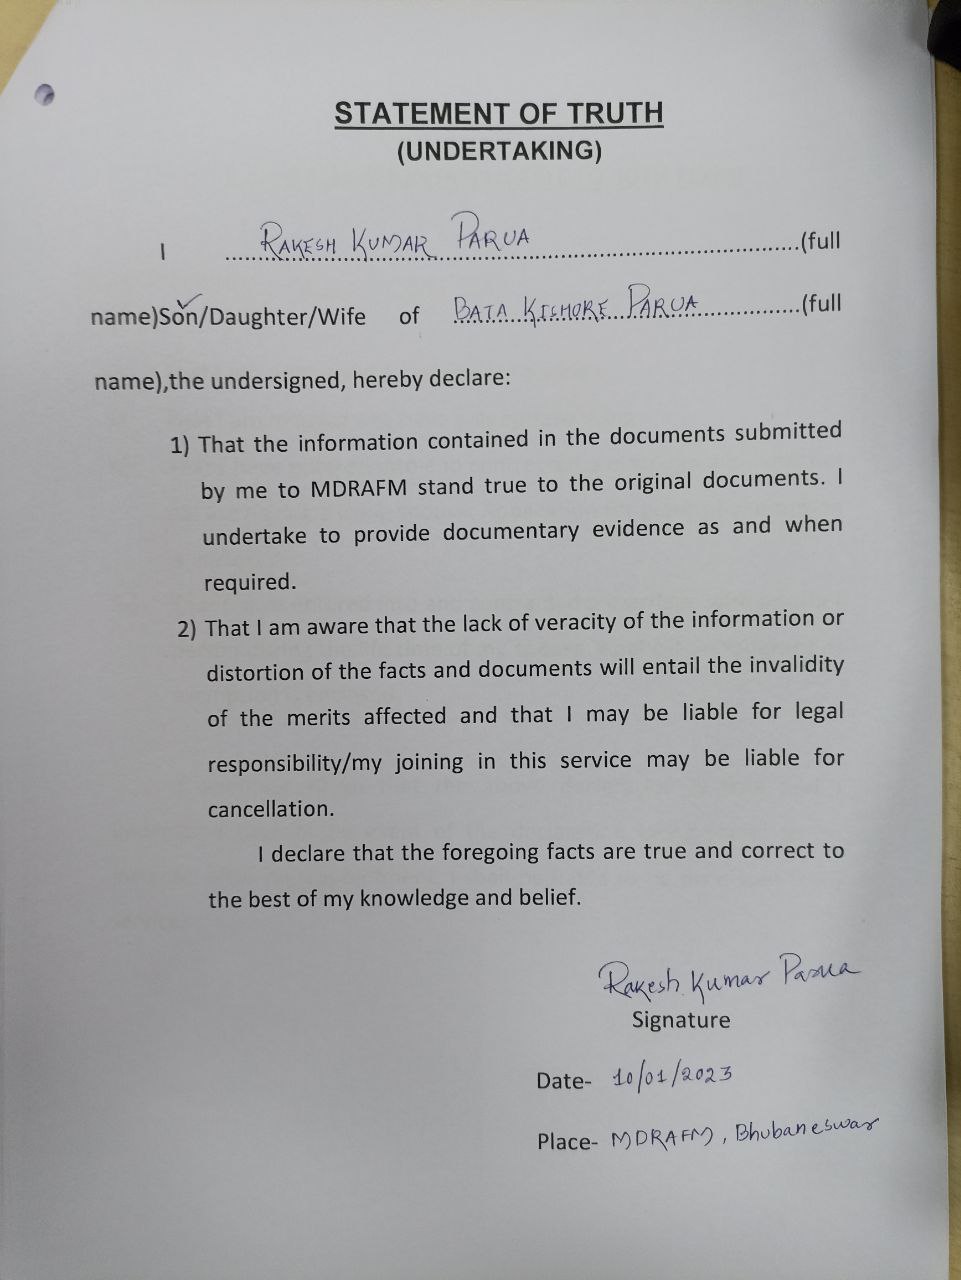 STATEMENT OF TRUTH
(UNDERTAKING)
I RAKESH KUMAR PARUA (full
name)Son/Daughter/Wife of BATA KISHORE PARUA (full
name),the undersigned, hereby declare:
1) That the information contained in the documents submitted
by me to MDRAFM stand true to the original documents. I
undertake to provide documentary evidence as and when
required.
2) That I am aware that the lack of veracity of the information or
distortion of the facts and documents will entail the invalidity
of the merits affected and that I may be liable for legal
responsibility/my joining in this service may be liable for
cancellation.
I declare that the foregoing facts are true and correct to
the best of my knowledge and belief.
Rakesh Kumar Parua
Signature
Date- 10/01/2023
Place- MDRAFM, Bhubaneswar